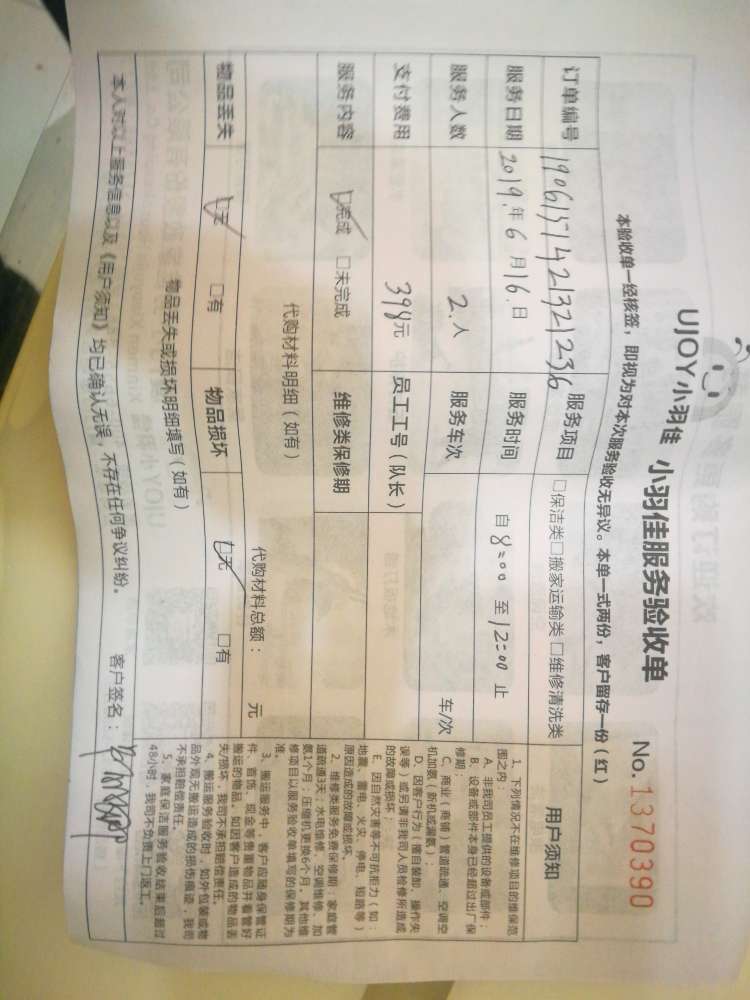 UJOY小羽佳 小羽佳服务验收单 No.1370390
本验收单一经核签，即视为对本次服务验收无异议。本单一式两份，客户留存一份（红）
订单编号 190615142132123b 服务项目 □保洁类□搬家运输类 □维修清洗类
服务日期 2019年6月16日 服务时间 自8:00至12:00止
服务人数 2.人 服务车次 车/次
支付费用 398元 员工工号（队长）
服务内容 ☑完成 □未完成 维修类保修期
代购材料明细（如有） 代购材料总额： 元
物品丢失 ☑无 □有 物品损坏 ☑无 □有
物品丢失或损坏明细填写（如有）
本人对以上服务信息以及《用户须知》均已确认无误，不存在任何争议纠纷。 客户签名：
用户须知
1、下列情况不在维修项目的维保范
围之内：
A、非我司员工提供的设备或部件；
B、设备或部件本身已经超过出厂保
修期；
C、商业（商铺）管道疏通、空调空
机加氨（新机或漏氨）；
D、因客户行为（擅自装卸、操作失
误等）或另请非我司人员检修所造成
的故障或损坏；
E、因自然灾害等不可抗拒力（如：
地震、雷电、火灾、停电、短路等）
原因造成的故障或损坏。
2、维修类服务免费保修期：家庭管
道疏通3天；水电维修、空调维修、加
氨1个月；压缩机更换6个月，其他维
修项目以服务验收单填写的保修期为
准。
3、搬运服务中，客户应随身保管证
件、首饰、现金等贵重物品并看管好
搬运的物品。如因客户造成的物品丢
失/损坏，我司不承担赔偿责任。
4、搬运服务验收时，如外包装或物
品外观无搬运造成的损伤痕迹，我司
不承担赔偿责任。
5、家庭保洁服务验收结束后超过
48小时，我司不负责上门返工。